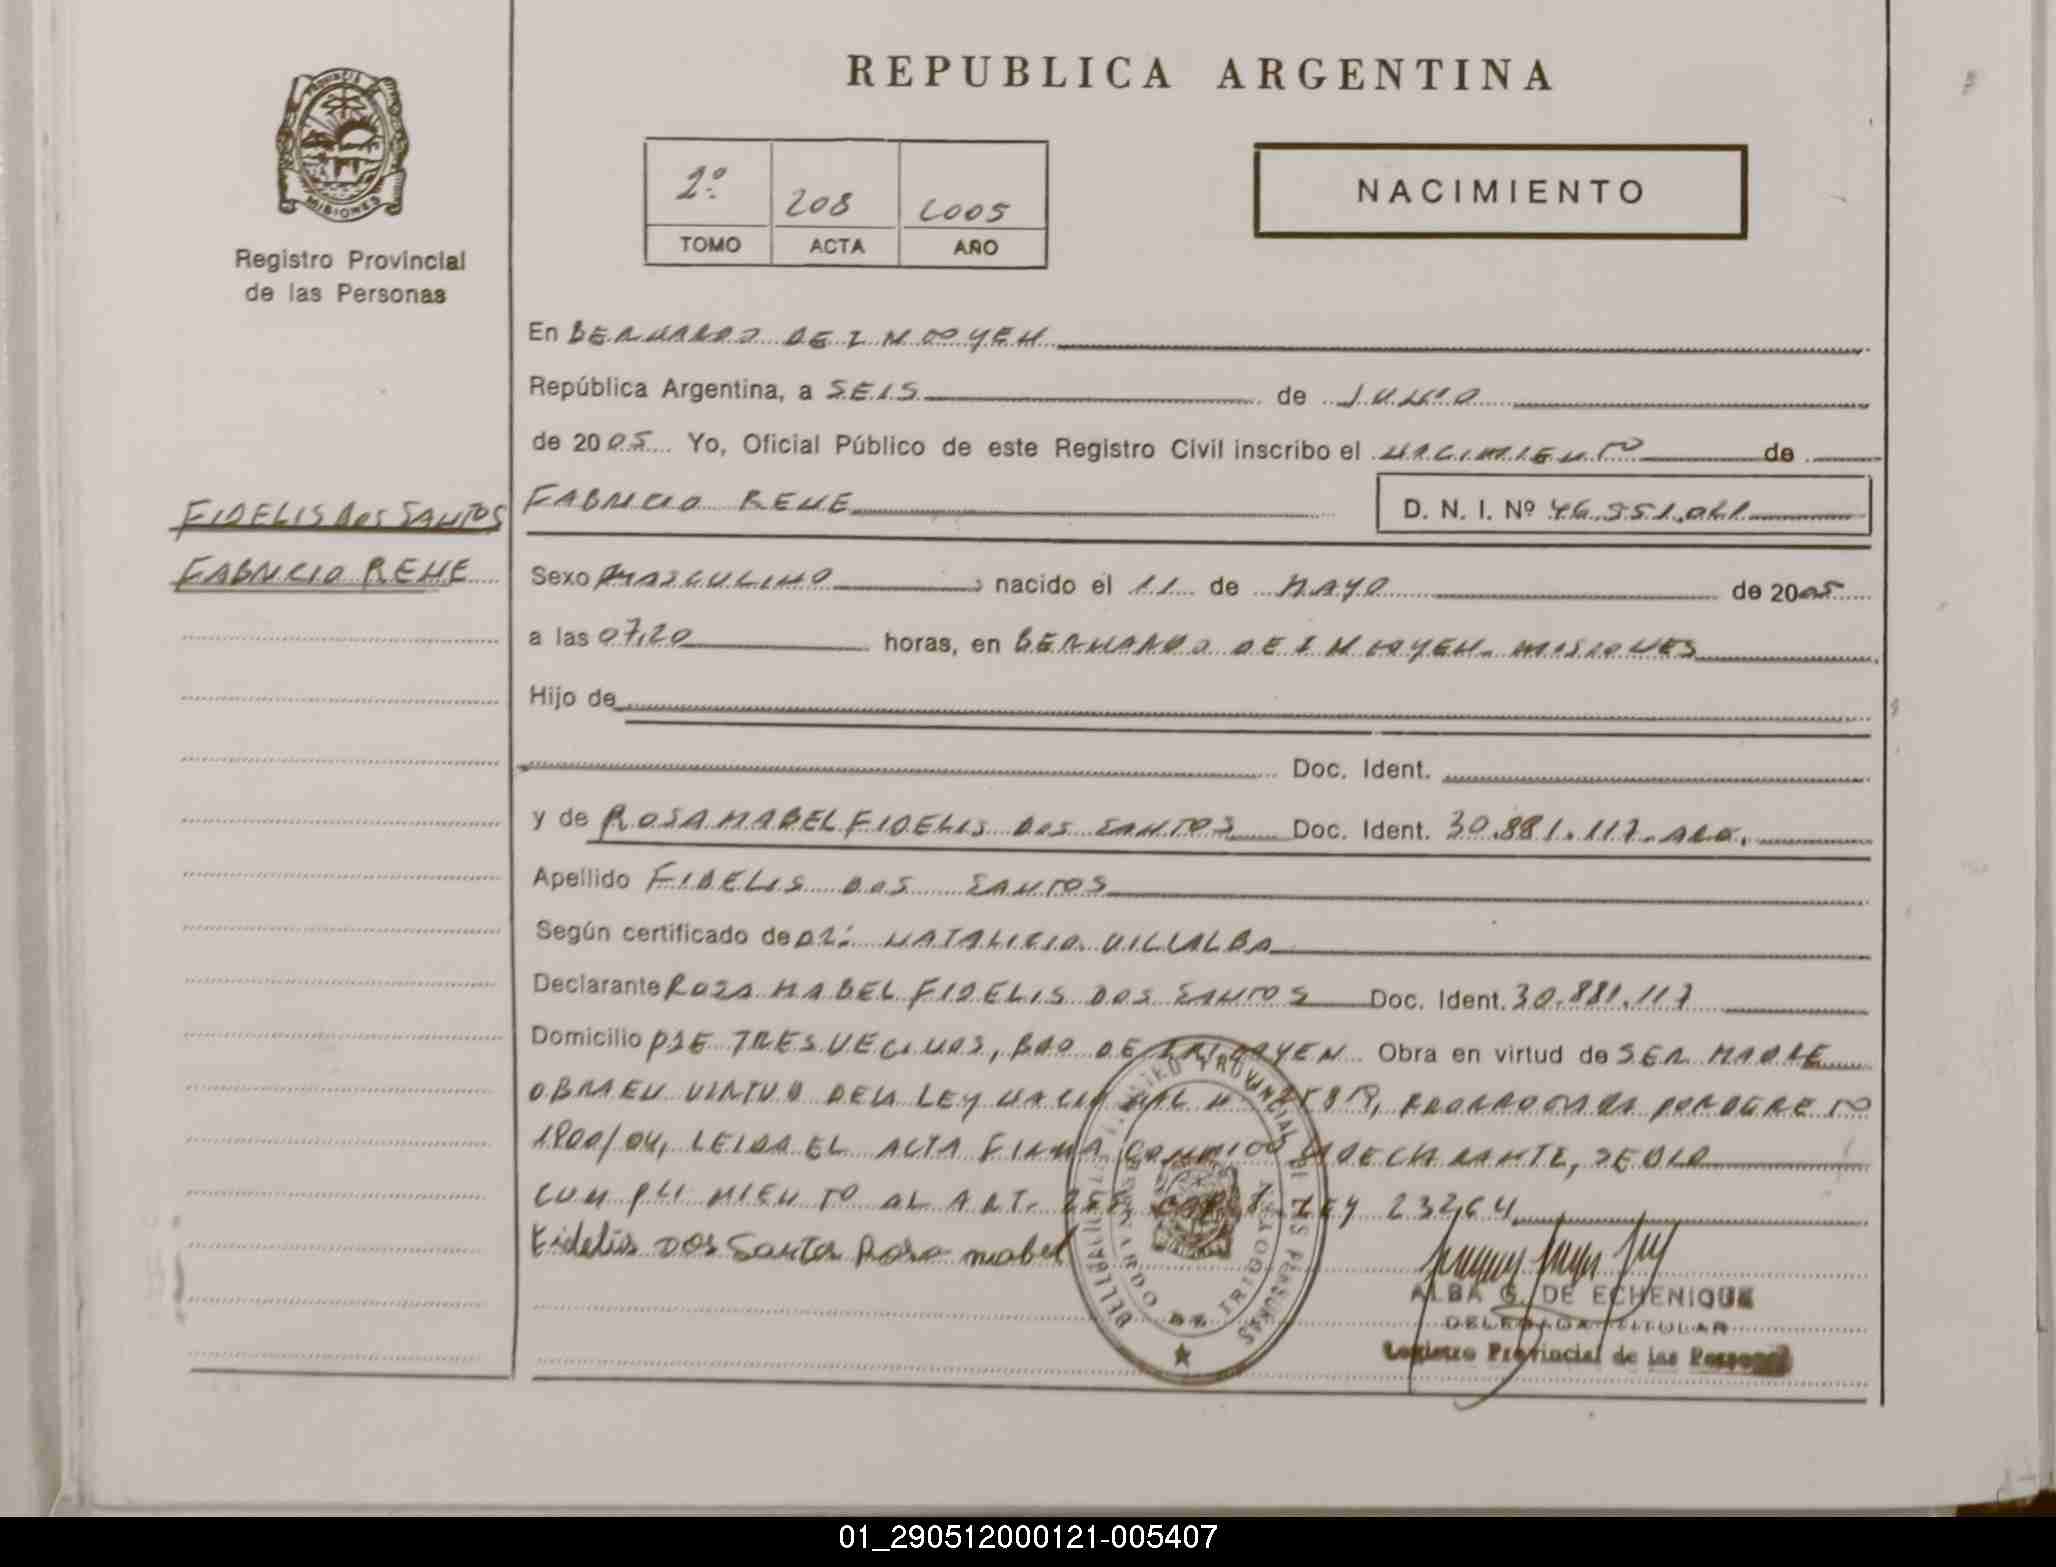 REPUBLICA ARGENTINA
PROVINCIA
MISIONES
Registro Provincial
de las Personas
2º 208 2005
TOMO ACTA AÑO
NACIMIENTO
En BERNARDO DE IRIGOYEN
República Argentina, a SEIS de JULIO
de 2005 Yo, Oficial Público de este Registro Civil inscribo el NACIMIENTO de
FIDELIS DOS SANTOS
FABRICIO RENE
FABRICIO RENE D. N. I. Nº 46.351.021
Sexo MASCULINO nacido el 11 de MAYO de 2005
a las 07,20 horas, en BERNARDO DE IRIGOYEN - MISIONES
Hijo de
Doc. Ident.
y de ROSA MABEL FIDELIS DOS SANTOS Doc. Ident. 30.881.117 - ARG.
Apellido FIDELIS DOS SANTOS
Según certificado de DR: NATALICIO VILLALBA
Declarante ROSA MABEL FIDELIS DOS SANTOS Doc. Ident. 30.881.117
Domicilio PJE TRES VECINOS, BDO DE IRIGOYEN Obra en virtud de SER MADRE
OBRA EN VIRTUD DE LA LEY NACIONAL N 25819, POR DECRETO
1900/04, LEIDA EL ACTA FIRMA CONMIGO LA DECLARANTE, SE DIO
CUMPLIMIENTO AL ART. 255 LEY 23264
Fidelis Dos Santos Rosa mabel
REGISTRO PROVINCIAL DE LAS PERSONAS
BERNARDO DE IRIGOYEN
ALBA G. DE ECHENIQUE
DELEGADA TITULAR
Registro Provincial de las Personas
01_290512000121-005407